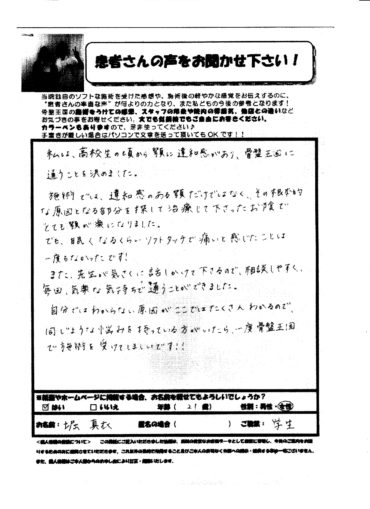 患者さんの声をお聞かせ下さい！
当院独自のソフトな施術を受けた感想や、施術後の軽やかな感覚をお伝えするのに、
"患者さんの率直な声"が何よりの力となり、また私どもの今後の参考となります！
骨盤王国の施術をうけての感想、スタッフの印象や院内の雰囲気、他店との違いなど
お気づきの事をお寄せください。文でも似顔絵でもご自由にお書きください。
カラーペンもありますので、是非使ってください♪
手書きが難しい場合はパソコンで文章を送って頂いてもOKです！！
私は、高校生の頃から顎に違和感があり、骨盤王国に
通うことを決めました。
施術では、違和感のある顎だけではなく、その根本的
な原因となる部分を探して治療して下さったお陰で
とても顎が楽になりました。
でも、眠くなるくらいソフトタッチで痛いと感じたことは
一度もなかったです！
また、先生が気さくに話しかけて下さるので、相談しやすく、
毎回、気楽な気持ちで通うことができました。
自分ではわからない原因がここではたくさんわかるので、
同じような悩みを持っている方がいたら、一度骨盤王国
で施術を受けてほしいです！！
※紙面やホームページに掲載する場合、お名前を載せてもよろしいでしょうか？
☑はい □いいえ 年齢（ 21 歳） 性別：男性・女性
お名前： 堀 真衣 匿名の場合（ ） ご職業： 学生